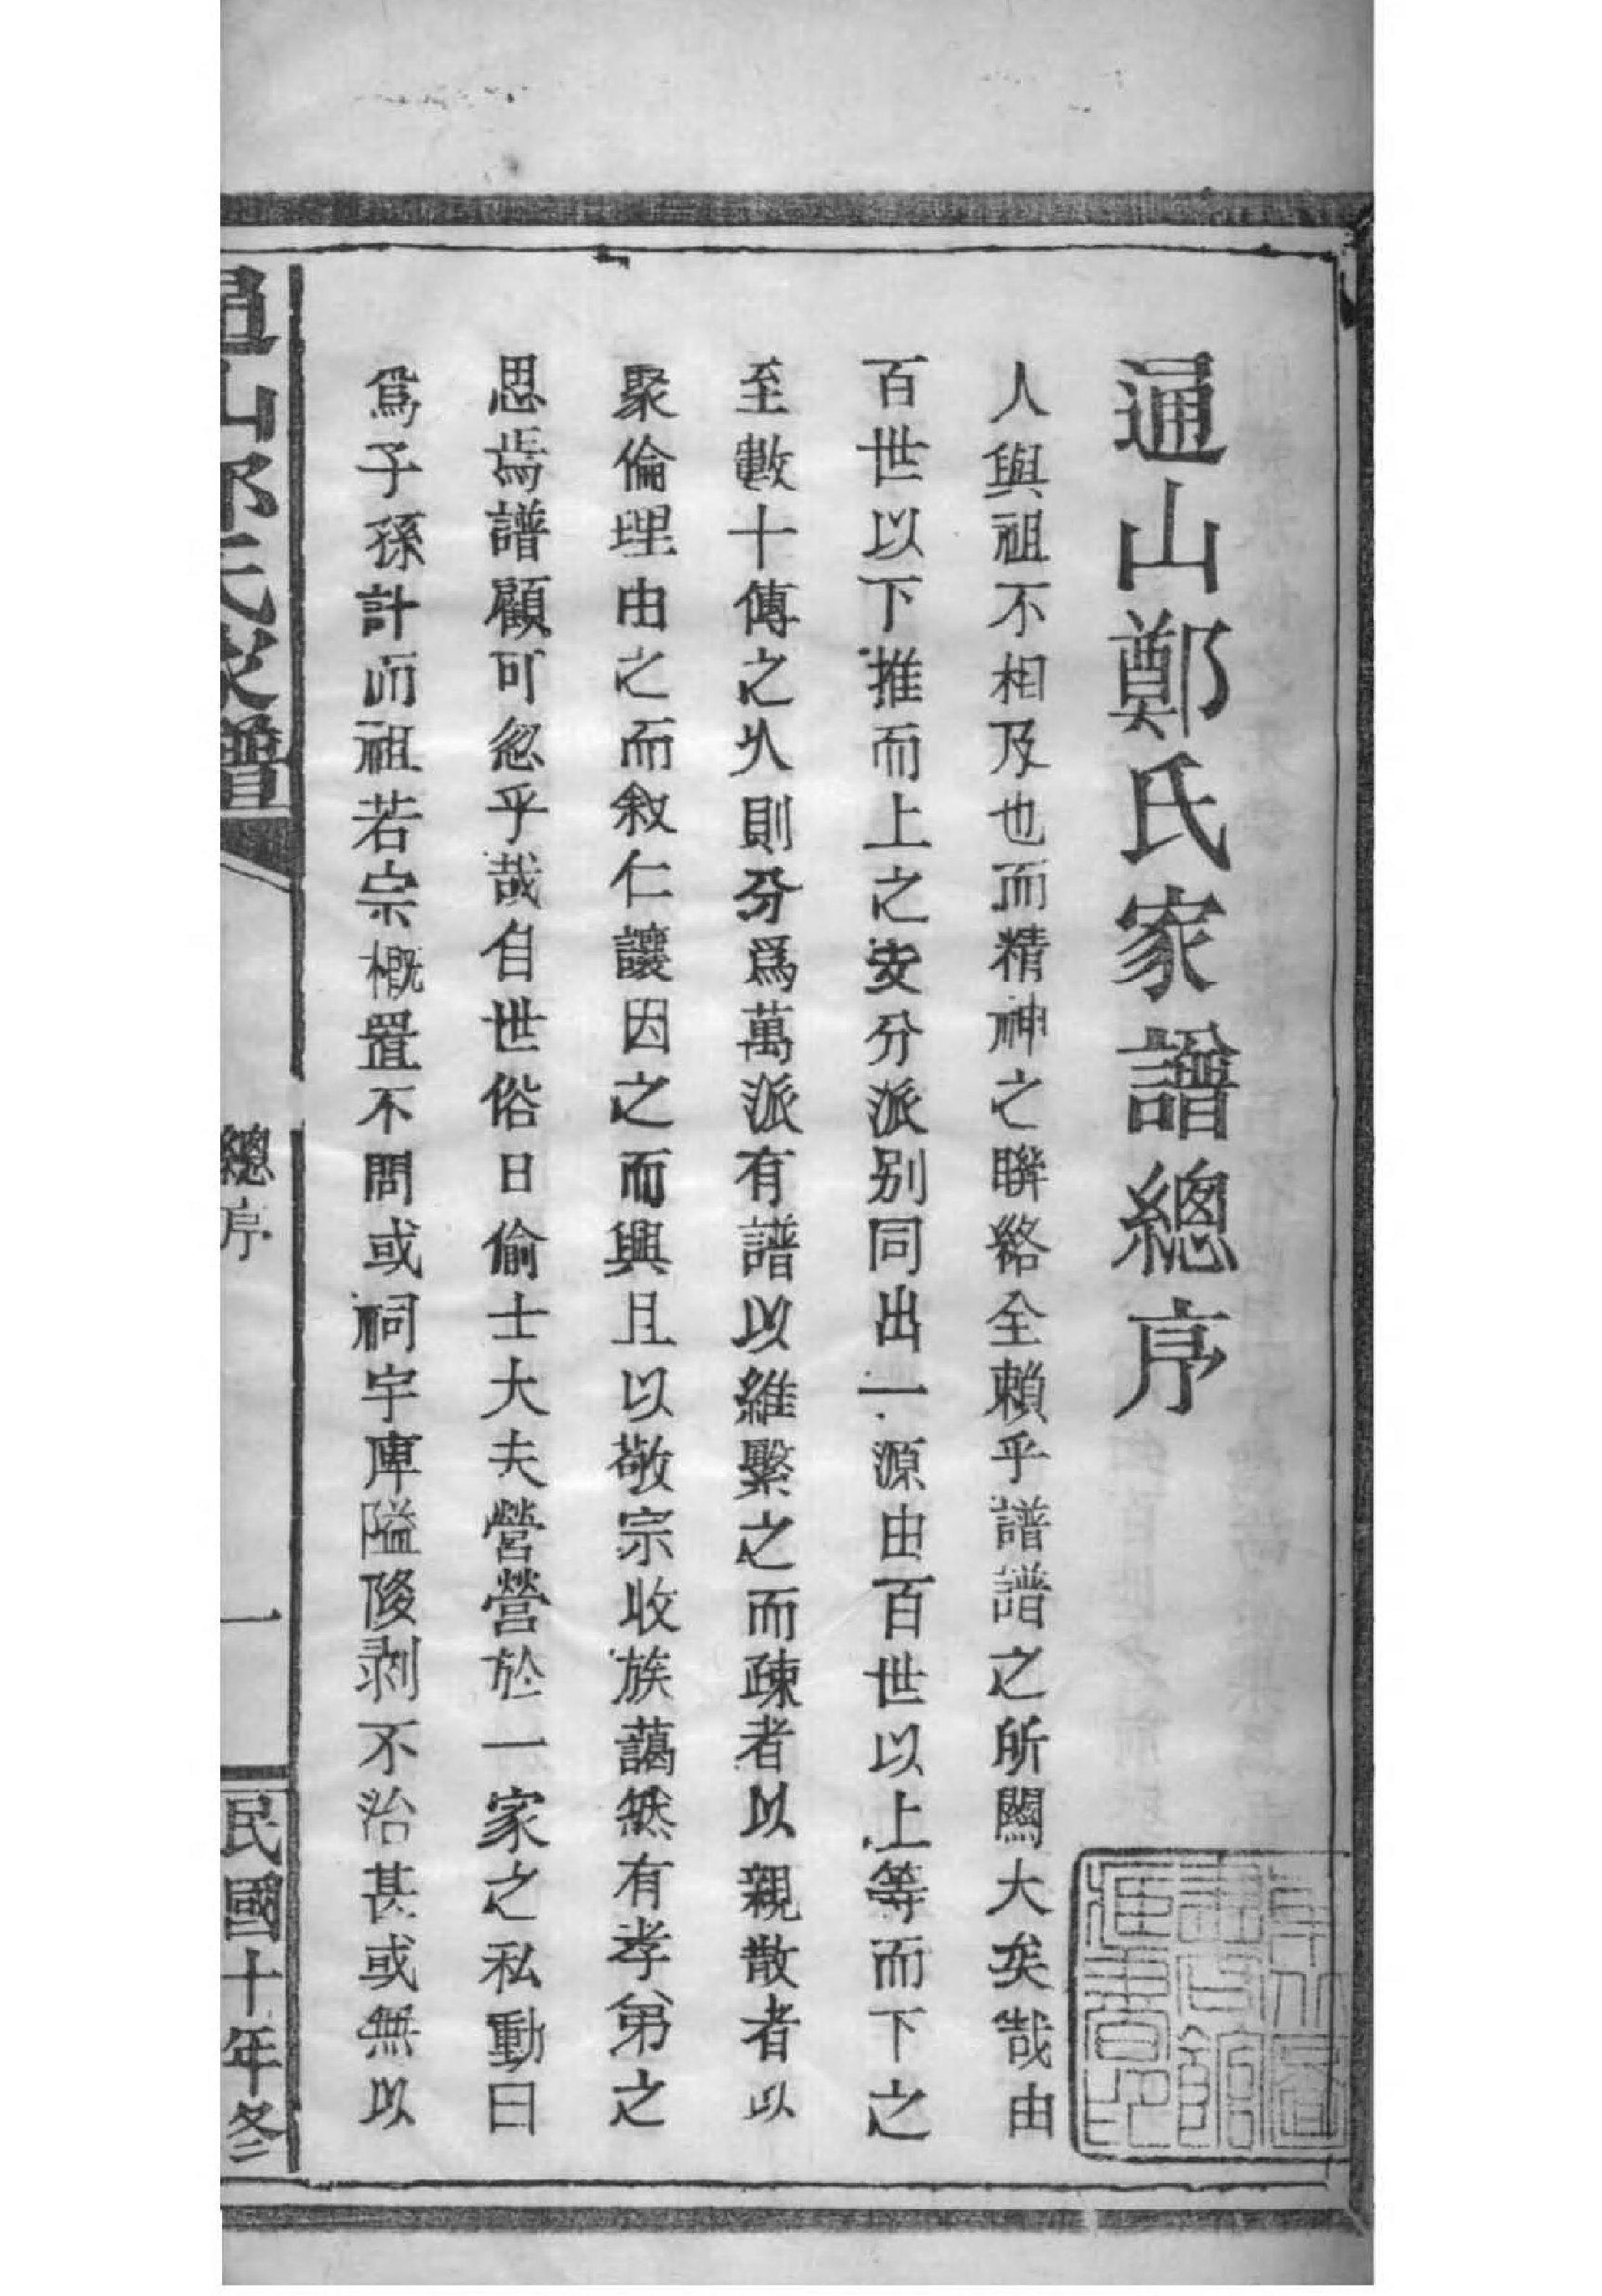 通山鄭氏家譜總序
人與祖不相及也而精神之聯絡全賴乎譜譜之所關大矣哉由
百世以下推而上之支分派别同出一源由百世以上等而下之
至數十傳之久則分爲萬派有譜以維繫之而疎者以親散者以
聚倫理由之而敘仁讓因之而興且以敬宗收族藹然有孝弟之
思焉譜顧可忽乎哉自世俗日偷士大夫營營於一家之私動曰
爲子孫計而祖若宗概置不問或祠宇庳隘陵剥不治甚或無以
通山鄭氏家譜
總序
一
民國十年冬